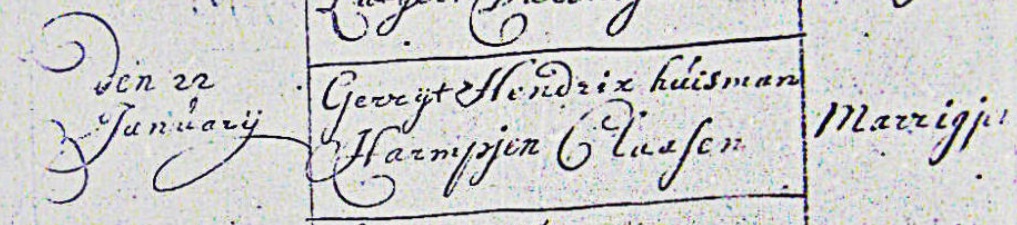 Den 22
Januarij
Gerryt Hendrix huisman
Harmpjen Claasen
Marrigje